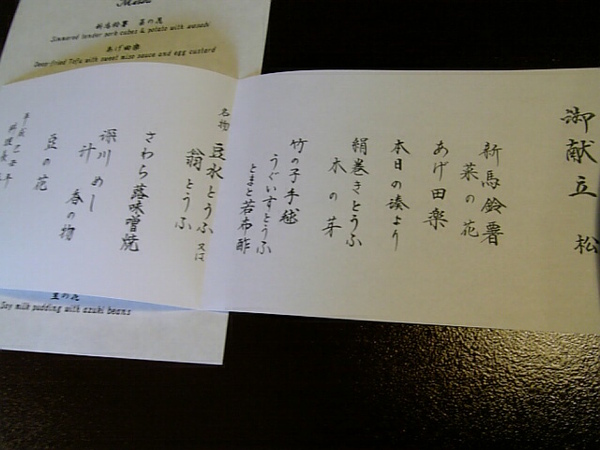 御献立 松
新馬鈴薯
菜の花
あげ田楽
本日の湊より
絹巻きとうふ
木の芽
竹の子手毬
うぐいすとうふ
とまと若布酢
名物 豆水とうふ 又は
翁とうふ
さわら蕗味噌焼
深川めし
汁 香の物
豆の花
平成
Menu
新馬鈴薯 菜の花
Simmered tender pork cubes & potato with wasabi
あげ田楽
Deep-fried Tofu with sweet miso sauce and egg custard
豆の花
Soy milk pudding with azuki beans